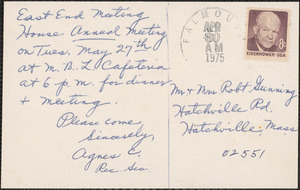 East End Meeting
House Annual Meeting
on Tues. May 27th
at M.B.L Cafeteria
at 6 p.m. for dinner
& Meeting.
Please come,
Sincerely,
Agnes C.
Rec Sec
FALMOU
APR
30
AM
1975
EISENHOWER·USA
8c
Mr & Mrs Robt Gunning
Hatchville Rd.
Hatchville, Mass
02551